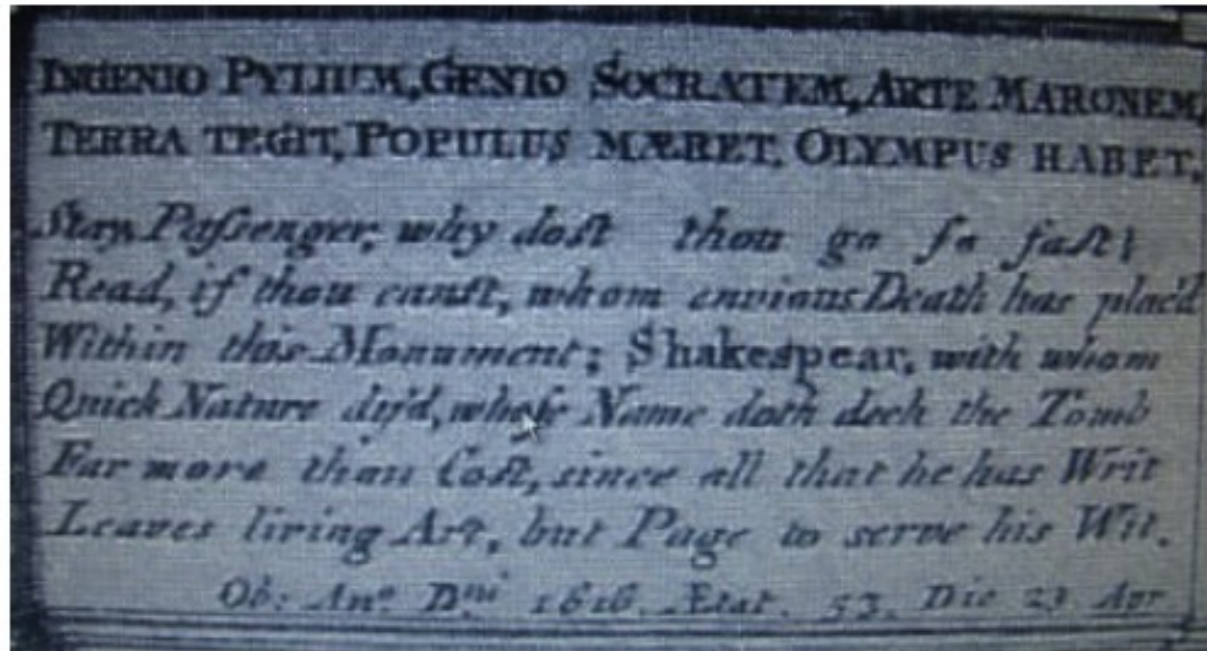 INGENIO PYLIUM, GENIO SOCRATEM, ARTE MARONEM,
TERRA TEGIT, POPULUS MÆRET, OLYMPUS HABET.
Stay, Paſſenger, why doſt thou go ſo faſt;
Read, if thou canſt, whom envious Death has plac'd
Within this Monument; Shakespear, with whom
Quick Nature dy'd, whoſe Name doth deck the Tomb
Far more than Coſt, since all that he has Writ
Leaves living Art, but Page to serve his Wit.
Ob: Anº. Dⁿⁱ 1616. Ætat. 53. Die 23 Apr